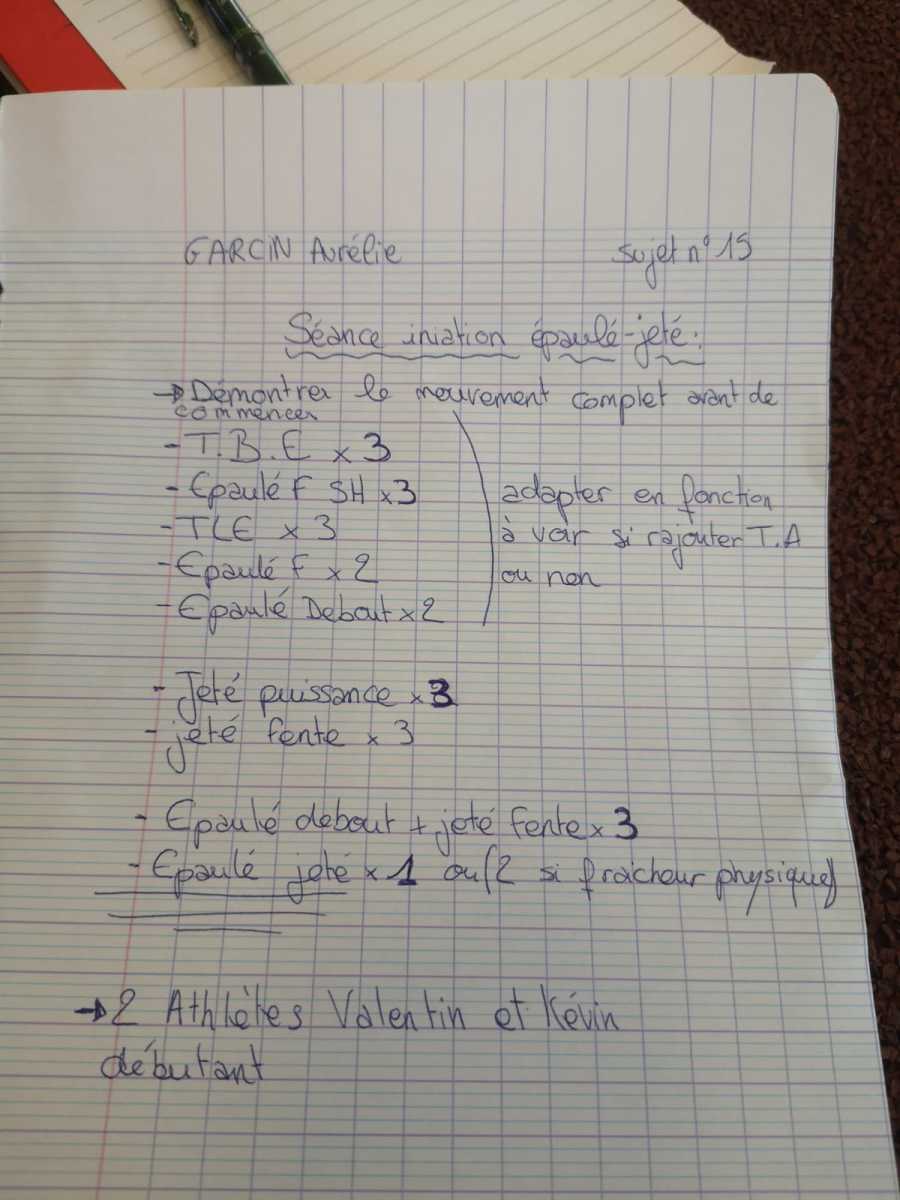 GARCIN Aurélie
Sujet n° 15
Séance iniation épaulé-jeté.
→ Démontrer le mouvement complet avant de
commencer
- T.B.E x 3
- Epaulé F SH x 3
- TLE x 3
- Epaulé F x 2
- Epaulé Debout x 2
adapter en fonction
à voir si rajouter T.A
ou non
- Jeté puissance x 3
- jeté fente x 3
- Epaulé debout + jeté fente x 3
- Epaulé jeté x 1 ou (2 si fraicheur physique)
→ 2 Athlètes Valentin et Kévin
débutant